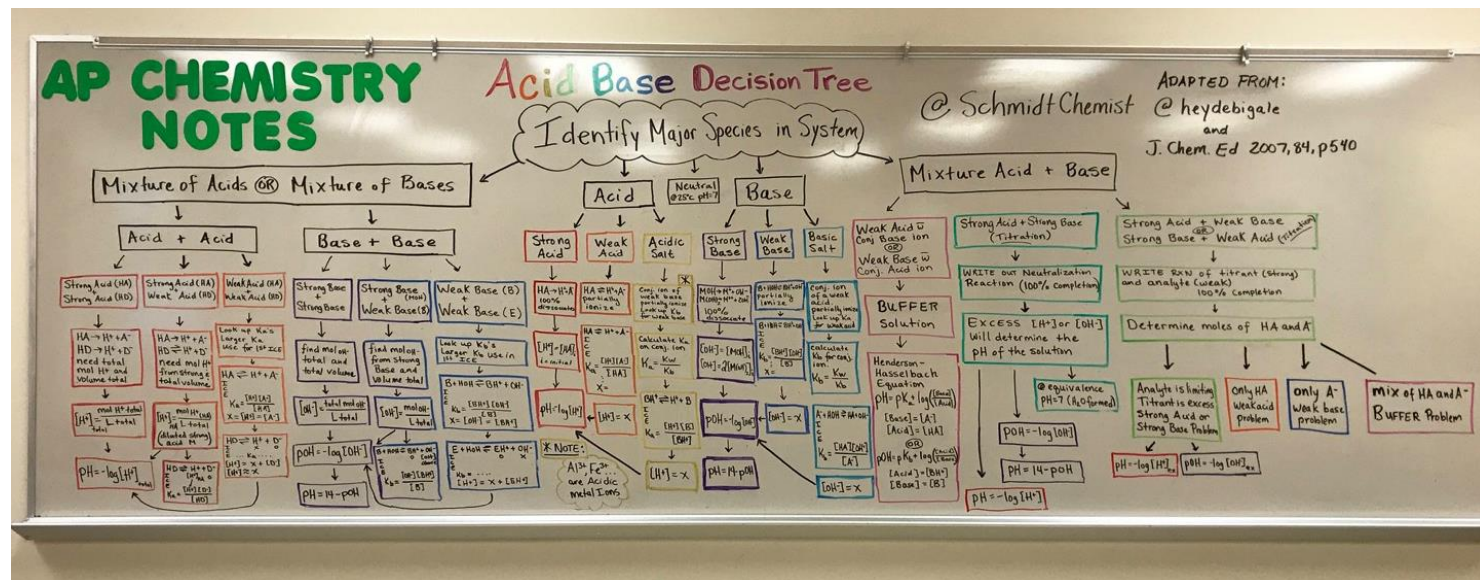 AP CHEMISTRY
NOTES
Acid Base Decision Tree
Identify Major Species in System
@SchmidtChemist
ADAPTED FROM:
@heydebigale
and
J. Chem. Ed 2007, 84, p540
Mixture of Acids OR Mixture of Bases
Acid + Acid
Strong Acid (HA)
+
Strong Acid (HD)
HA → H⁺ + A⁻
HD → H⁺ + D⁻
need total
mol H⁺ and
Volume total
[H⁺] = mol H⁺ total
L total
pH = -log[H⁺] total
Strong Acid (HA)
+
Weak Acid (HD)
HA → H⁺ + A⁻
HD ⇌ H⁺ + D⁻
need mol H⁺
from strong &
total volume
Weak Acid (HA)
+
Weak Acid (HD)
Look up Ka's
Larger Ka
use for 1st ICE
HA ⇌ H⁺ + A⁻
Base + Base
Strong Base
+
Strong Base
find mol OH⁻
total and
total volume
[OH⁻] = total mol OH⁻
L total
pOH = -log[OH⁻]
pH = 14 - pOH
Strong Base (MOH)
+
Weak Base (B)
find mol OH⁻
from Strong
Base and
volume total
[OH⁻] = mol OH⁻
L total
Weak Base (B)
+
Weak Base (E)
Look up Kb's
Larger Kb use in
1st ICE
B + HOH ⇌ BH⁺ + OH⁻
Kb = [BH⁺][OH⁻]
[B]
X = [OH⁻] = [BH⁺]
E + HOH ⇌ EH⁺ + OH⁻
Acid
Strong
Acid
HA → H⁺ + A⁻
100%
dissociate
pH = -log[H⁺]
Weak
Acid
HA ⇌ H⁺ + A⁻
partially
ionize
HA ⇌ H⁺ + A⁻
I
C
E
Ka = [H][A⁻]
[HA]
X =
[H⁺] = X
Acidic
Salt
*
Conj. ion of
weak base
partially ionize
Look up Kb
for weak base
Calculate Ka
on conj. ion
Ka = Kw
Kb
BH⁺ ⇌ H⁺ + B
I
C
E
Ka = [H⁺][B]
[BH⁺]
[H⁺] = X
* NOTE:
Al³⁺, Fe³⁺
are Acidic
metal Ions
Neutral
@25°C pH=7
Base
Strong
Base
100%
dissociate
pOH = -log[OH⁻]
pH = 14 - pOH
Weak
Base
partially
ionize
[OH⁻] = X
Basic
Salt
Conj. ion
of a weak
acid.
partially ionize
Look up Ka
for weak acid
calculate
Kb for conj.
ion
Kb = Kw
[OH⁻] = X
Mixture Acid + Base
Weak Acid w̄
Conj Base ion
OR
Weak Base w̄
Conj. Acid ion
BUFFER
Solution
Henderson-
Hasselbach
Equation
[Base] = [A⁻]
[Acid] = [HA]
OR
[Acid] = [BH⁺]
[Base] = [B]
Strong Acid + Strong Base
(Titration)
WRITE out Neutralization
Reaction (100% completion)
EXCESS [H⁺] or [OH⁻]
will determine the
pH of the solution
@ equivalence
pH=7 (H₂O formed)
pOH = -log[OH⁻]
pH = 14 - pOH
pH = -log[H⁺]
Strong Acid + Weak Base
OR
Strong Base + Weak Acid (Titration)
WRITE RXN of titrant (strong)
and analyte (weak)
100% completion
Determine moles of HA and A⁻
Analyte is limiting
Titrant is Excess
Strong Acid or
Strong Base Problem
pH = -log[H⁺]ex
pOH = -log[OH⁻]ex
only HA
weak acid
problem
only A⁻
weak base
problem
mix of HA and A⁻
BUFFER Problem